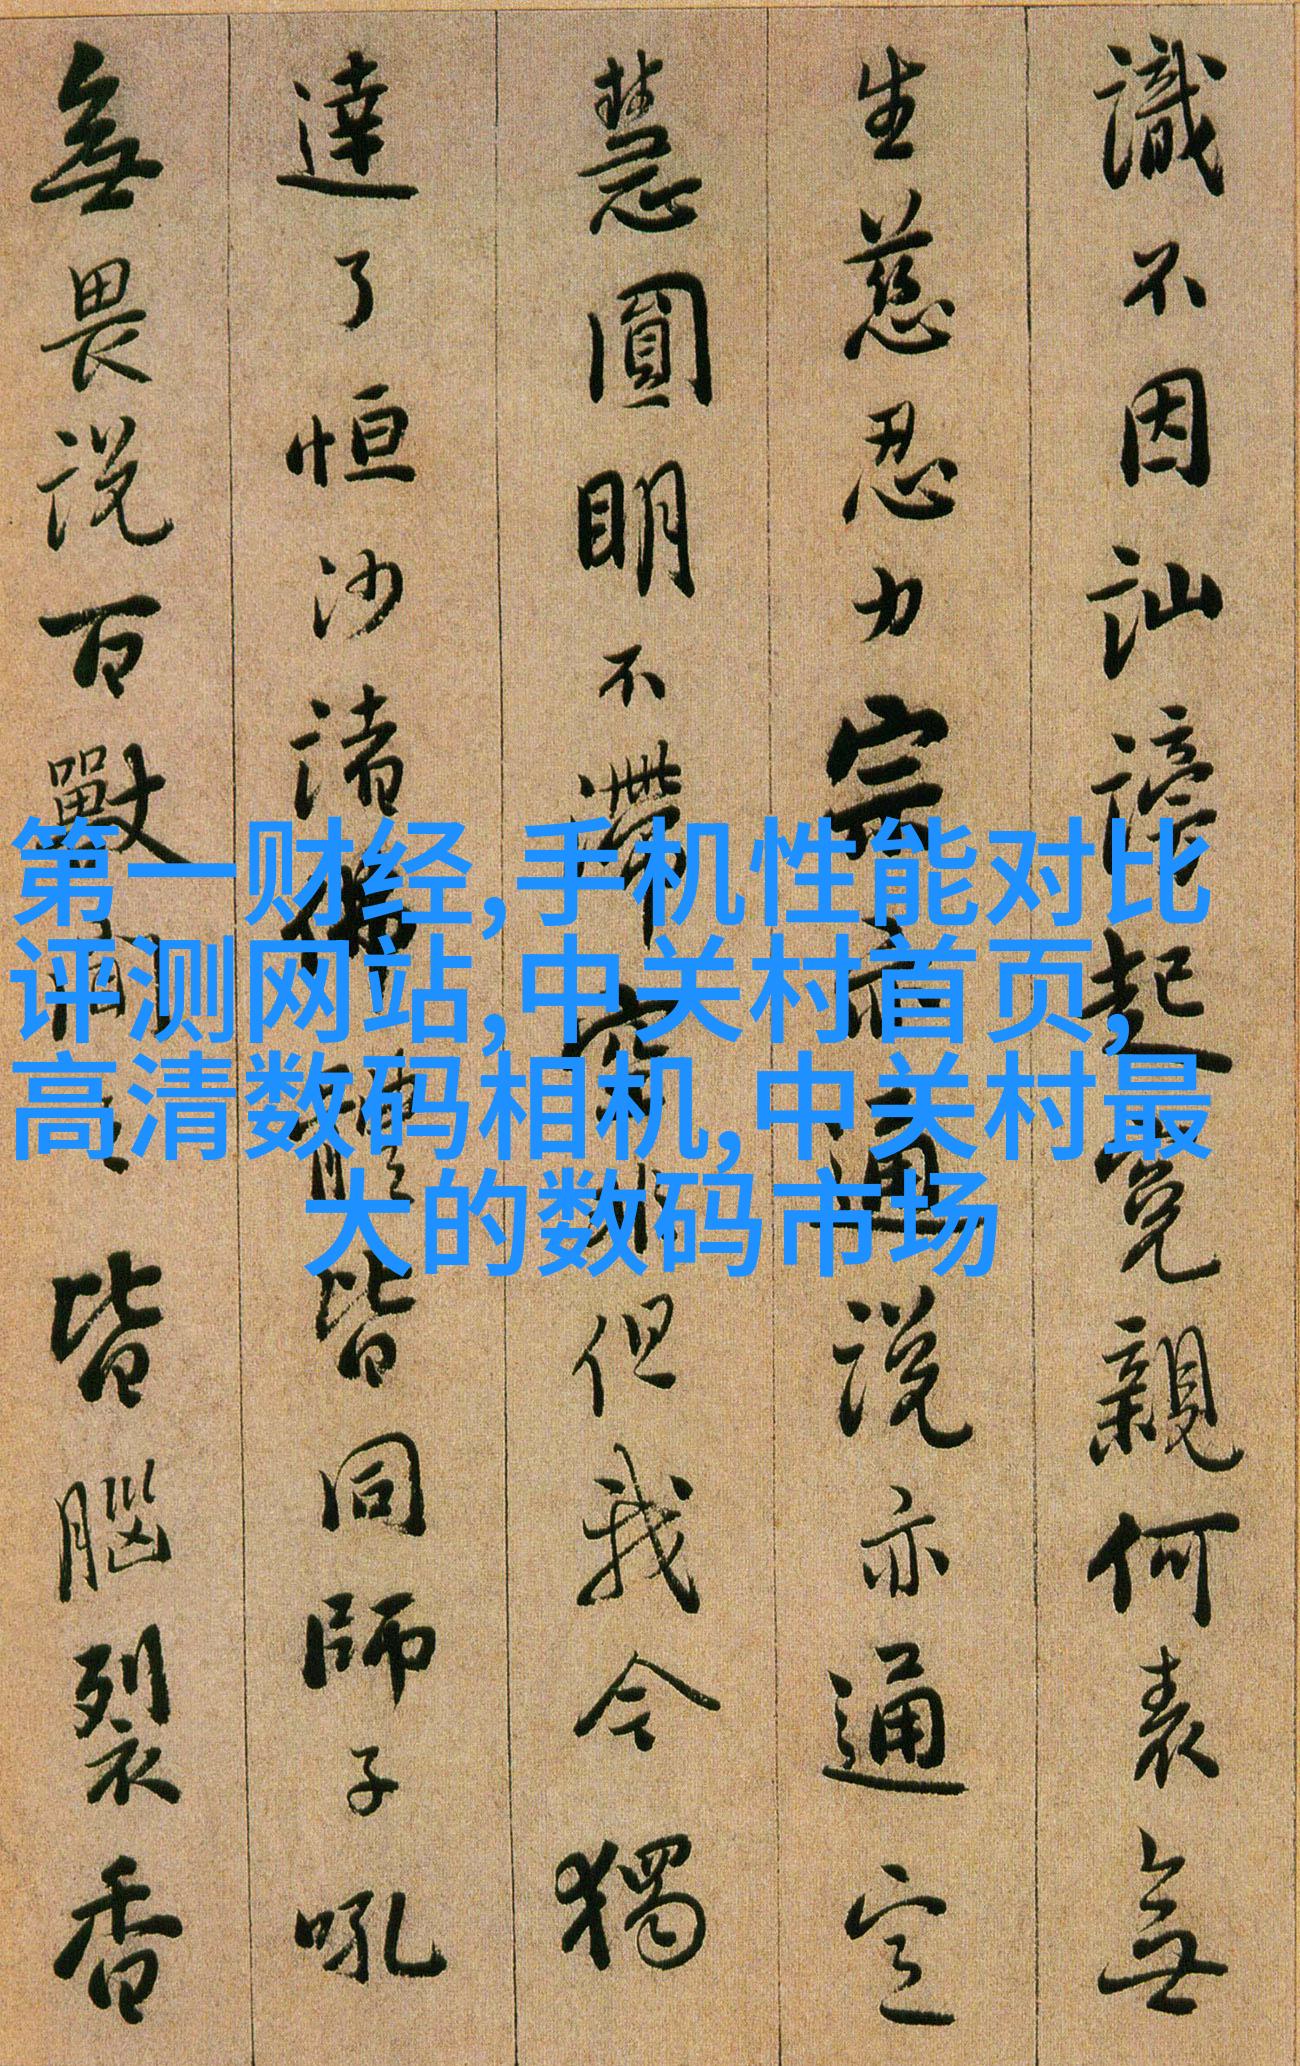 識不因訕謗起寃親何表無
生慈忍力宗亦通說亦通定
慧圓明不滯空非但我今獨
達了恒沙諸佛體皆同師子吼
無畏說百獸聞之皆腦裂香
第一财经,手机性能对比
评测网站,中关村首页,
高清数码相机,中关村最
大的数码市场